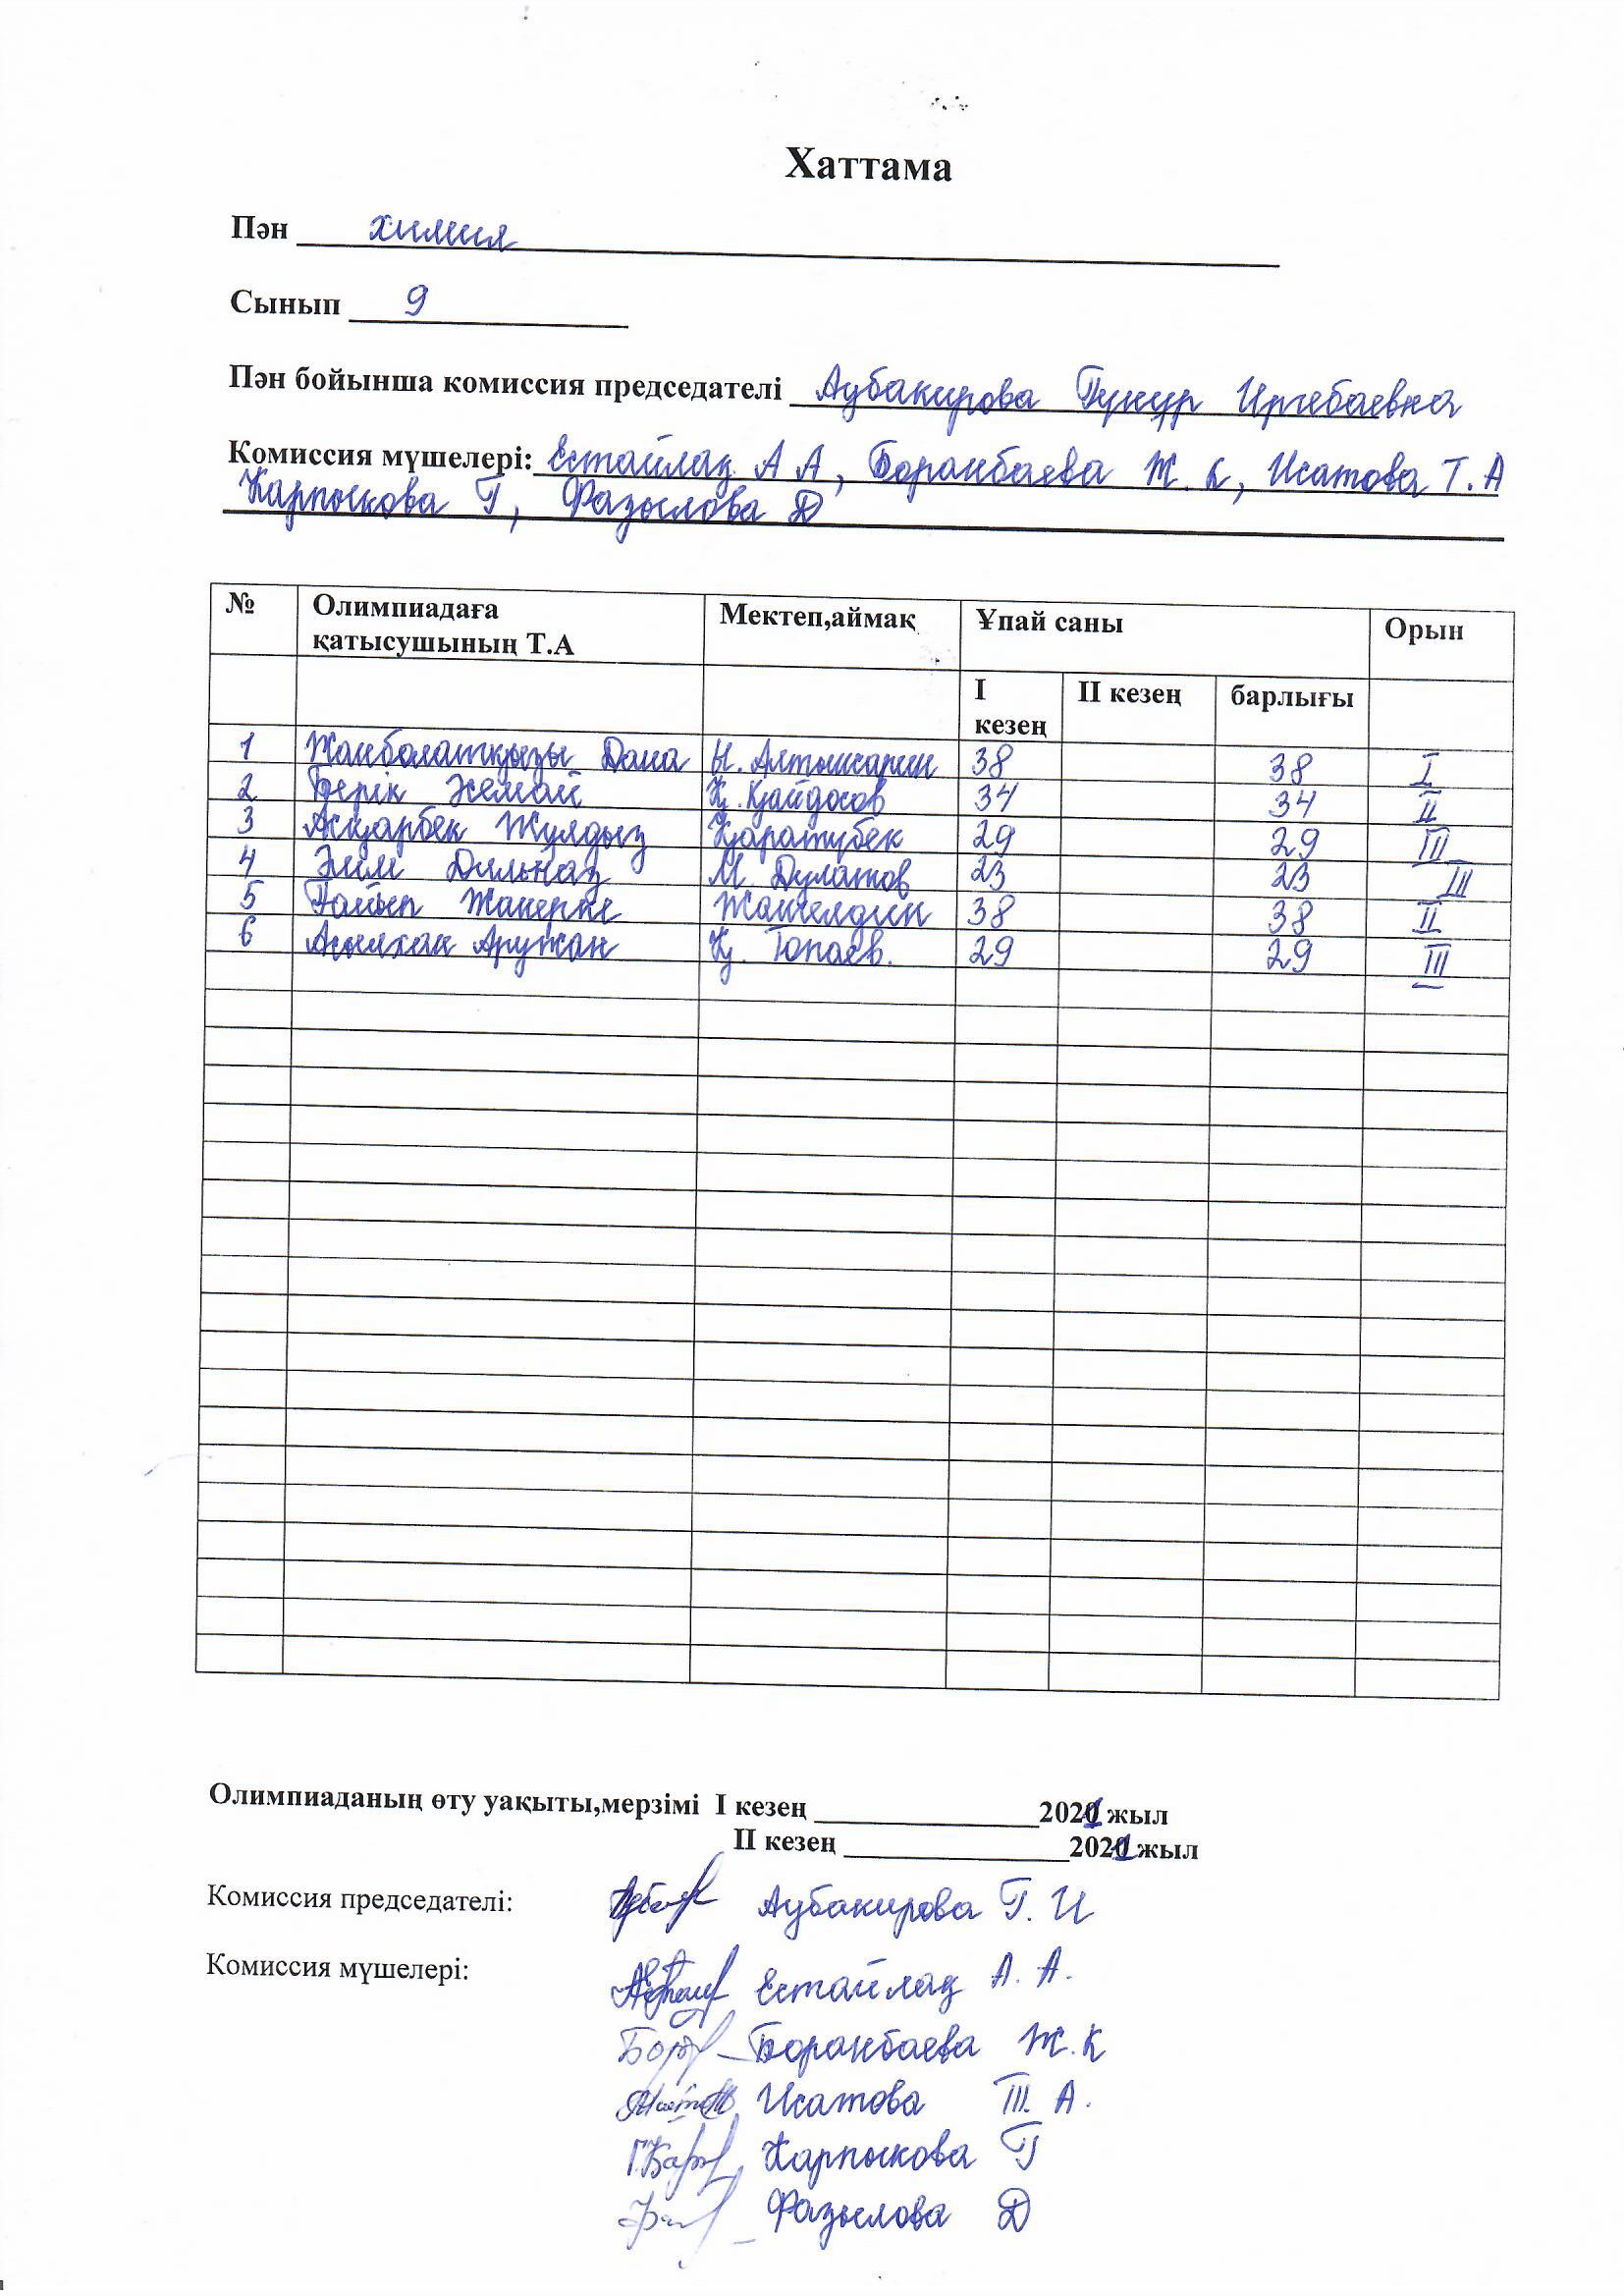 Хаттама
Пән химия
Сынып 9
Пән бойынша комиссия председателі Аубакирова Гүнұр Иргебаевна
Комиссия мүшелері: Естайлақ А А, Боранбаева Ж. К, Исатова Т. А
Карпыкова Г, Фазылова Д
№ Олимпиадаға қатысушының Т.А Мектеп,аймақ Ұпай саны Орын
I кезең II кезең барлығы
1 Жанболатқызы Дана Ы. Алтынсарин 38 38 I
2 Берік Жемай Қ. Қайдосов 34 34 II
3 Асқарбек Жулдыз Қаратүбек 29 29 III
4 Әлім Дильназ М Дулатов 23 23 III
5 Ғайып Жанерке Жангелдин 38 38 II
6 Ағилхан Аружан Қ. Топаев. 29 29 III
Олимпиаданың өту уақыты,мерзімі I кезең 2021 жыл
II кезең 2021 жыл
Комиссия председателі: Аубакирова Г. И
Комиссия мүшелері: Естайлақ А. А.
Боранбаева Ж. К
Исатова Т. А.
Карпыкова Г
Фазылова Д